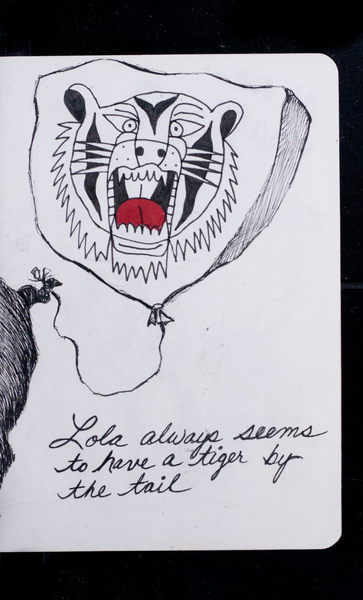 Lola always seems
to have a tiger by
the tail